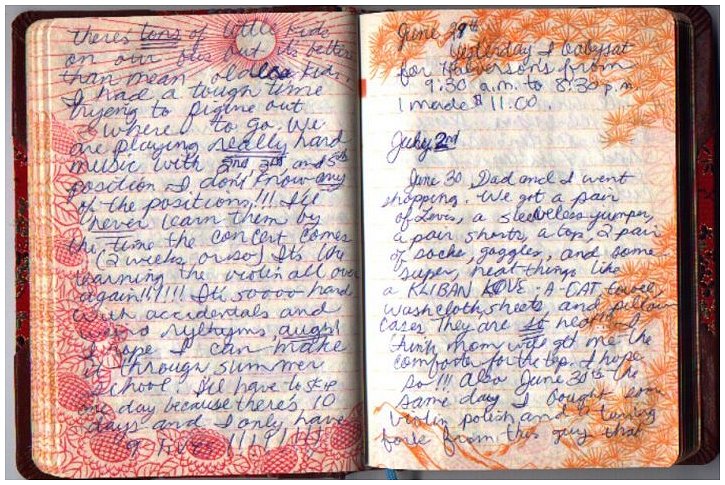 there's tons of little kids
on our bus but its better
than mean old kids.
I had a tough time
trying to figure out
where to go. We
are playing really hard
music with 2nd 3rd and 5th
position I don't know any
of the positions!!! I'll
never learn them by
the time the concert comes
(2 weeks or so) It's like
learning the violin all over
again!!!!!! It's soooo hard
with accidentals and
rythyms, augh!
I hope I can make
it through summer
school. I'll have to skip
one day because there's 10
days and I only have
9 !!!!!!!!
June 29th
Yesterday I babysat
for Halverson's from
9:30 a.m. to 8:30 p.m.
I made $11.00.
July 2nd
June 30, Dad and I went
shopping. We got a pair
of Levis, a sleeveless jumper,
a pair shorts, a top, 2 pair
of socks, goggles, and some
super, neat things like
a KLIBAN KOVE-A-CAT towel,
washcloth, sheets and pillow
cases They are so neat! I
think mom will get me the
comforter for the top. I hope
so!!! Also June 30th the
same day I bought some
violin polish and a tuning
fork from this guy that